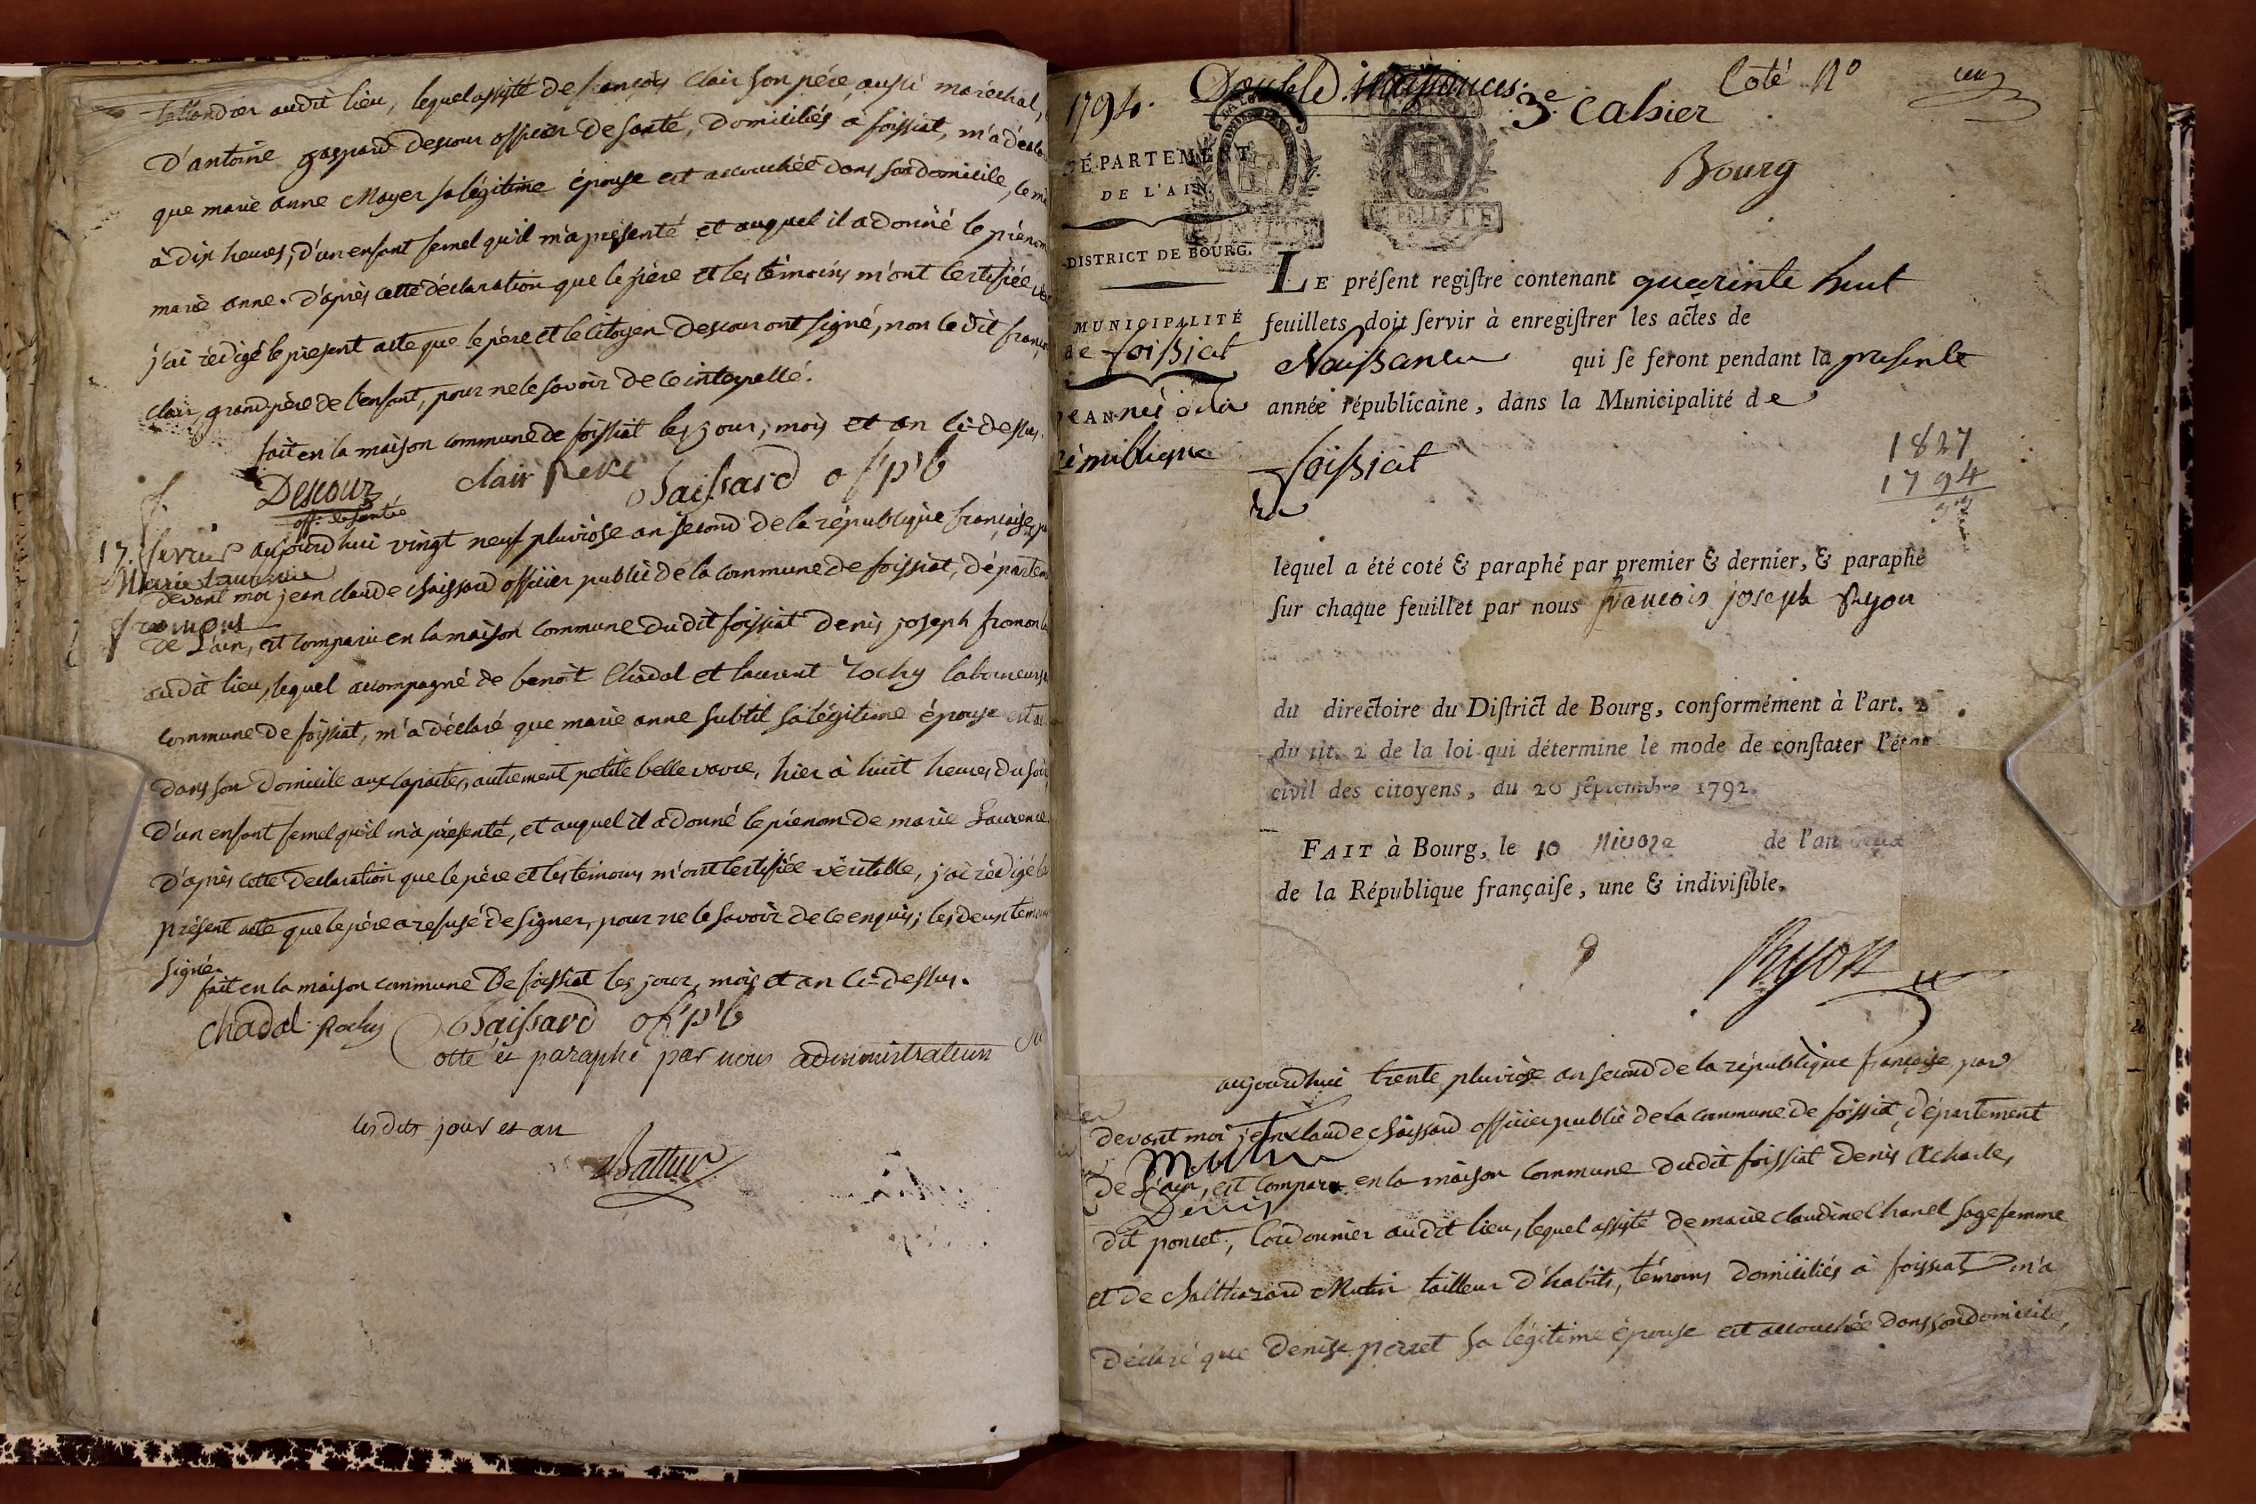 taillandier audit lieu, lequel assisté de françois Clair son père, aussi maréchal,
d'antoine gaspard descour officier de santé, domiciliés à foissiat, m'a déclaré
que marie anne Mayer sa légitime épouse est accouchée dans son domicile, ce
à dix heures, d'un enfant femel qu'il m'a présenté et auquel il a donné le prénom
marie anne. d'après cette déclaration que le père et les témoins m'ont certifiée
j'ai rédigé le présent acte que le père et le citoyen descour ont signé, non le dit
Clair, grand père de l'enfant, pour ne le savoir de ce interpellé.
fait en la maison commune de foissiat les jour, mois et an ci-dessus.
Descour clair Chaissard off p'b
off. de santé
17 fevrier aujourd'hui vingt neuf pluviôse an second de la république française, par
Marie Laurence
devant moi jean claude chaissard officier public de la commune de foissiat, départem
fromont
de l'ain, est comparu en la maison commune dudit foissiat denis joseph fromont
audit lieu, lequel accompagné de benoit Chadal et laurent Rochy laboureurs
commune de foissiat, m'a déclaré que marie anne subtil sa légitime épouse est
dans son domicile aux autrement petite belle vavre, hier à huit heures du soir,
d'un enfant femel qu'il m'a présenté, et auquel il a donné le prénom de marie Laurence.
d'après cette déclaration que le père et les témoins m'ont certifiée véritable, j'ai rédigé le
présent acte que le père a refusé de signer, pour ne le savoir de ce enquis; les deux temoins
signé.
fait en la maison commune de foissiat les jour, mois et an ci-dessus.
chadal Rochy Chaissard off p'b
Cotté et paraphé par nous administrateur
lesdits jour et an
1794. Double. naissances. 3e Cahier Coté No un
Bourg
DÉPARTEMENT
DE L'AIN.
DISTRICT DE BOURG.
MUNICIPALITÉ
de foissiat
Le préſent regiſtre contenant quarinte huit
feuillets doit ſervir à enregiſtrer les actes de
Naissance qui ſe feront pendant la presente
année républicaine, dans la Municipalité de
foissiat
1827
1794
lequel a été coté & paraphé par premier & dernier, & paraphé
ſur chaque feuillet par nous françois joseph
du directoire du Diſtrict de Bourg, conformément à l'art. 2
du tit. 2 de la loi qui détermine le mode de conſtater l'état
civil des citoyens, du 20 ſeptembre 1792.
FAIT à Bourg, le 10 Nivose de l'an deux
de la République françaiſe, une & indiviſible.
aujourd'hui trente pluviôse an second de la république française, par
devant moi jean claude chaissard officier public de la commune de foissiat, département
Mutin
de l'ain, est comparu en la maison commune dudit foissiat denis Acharle,
Denis
dit poncet, Cordonnier audit lieu, lequel assisté de marie claudine Chanel sage femme
et de Balthazard Mutin tailleur d'habits, témoins domiciliés à foissiat, m'a
déclaré que denise perret sa légitime épouse est accouchée dans son domicile,